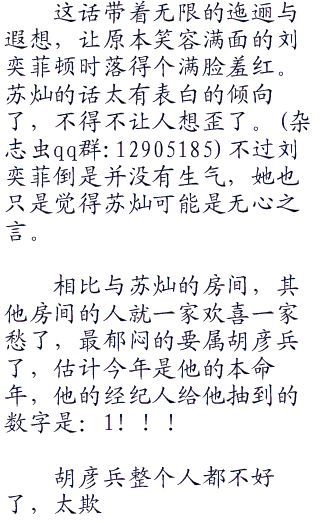 这话带着无限的迤逦与
遐想，让原本笑容满面的刘
奕菲顿时落得个满脸羞红。
苏灿的话太有表白的倾向
了，不得不让人想歪了。(杂
志虫qq群:12905185)不过刘
奕菲倒是并没有生气，她也
只是觉得苏灿可能是无心之
言。
相比与苏灿的房间，其
他房间的人就一家欢喜一家
愁了，最郁闷的要属胡彦兵
了，估计今年是他的本命
年，他的经纪人给他抽到的
数字是：1！！！
胡彦兵整个人都不好
了，太欺